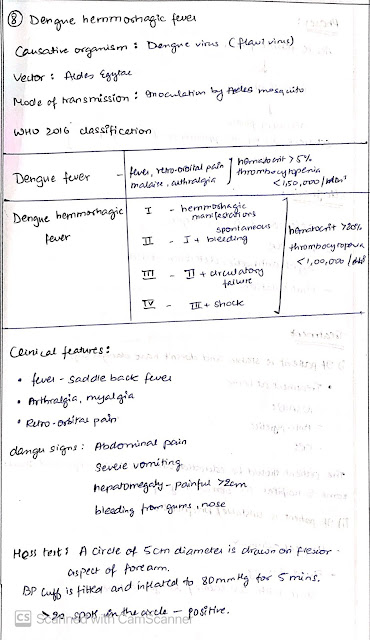 ⑧ Dengue hemmoshagic fever
Causative organism : Dengue virus (flavi virus)
Vector : Aedes Egytae
Mode of transmission : Inoculation by Aedes mosquito
WHO 2016 classification
Dengue fever - fever, retro-orbital pain
malaise, arthralgia
hematocrit > 5%
thrombocytopenia
< 1,50,000 /
Dengue hemorrhagic
fever
I - hemmoshagic
manifestations
II - I + spontaneous
bleeding
III - II + circulatory
failure
IV - III + shock
hematocrit >20%
thrombocytopenia
< 1,00,000 /
Clinical features :
• fever - saddle back fever
• Arthralgia, myalgia
• Retro-orbital pain
danger signs : Abdominal pain
Severe vomiting
hepatomegaly - painful >2cm
bleeding from gums, nose
Hess test : A circle of 5cm diameter is drawn on flexor -
aspect of forearm.
BP Cuff is fitted and inflated to 80mmHg for 5 mins.
> 20 spots in the circle - positive.
CS Scanned with CamScanner